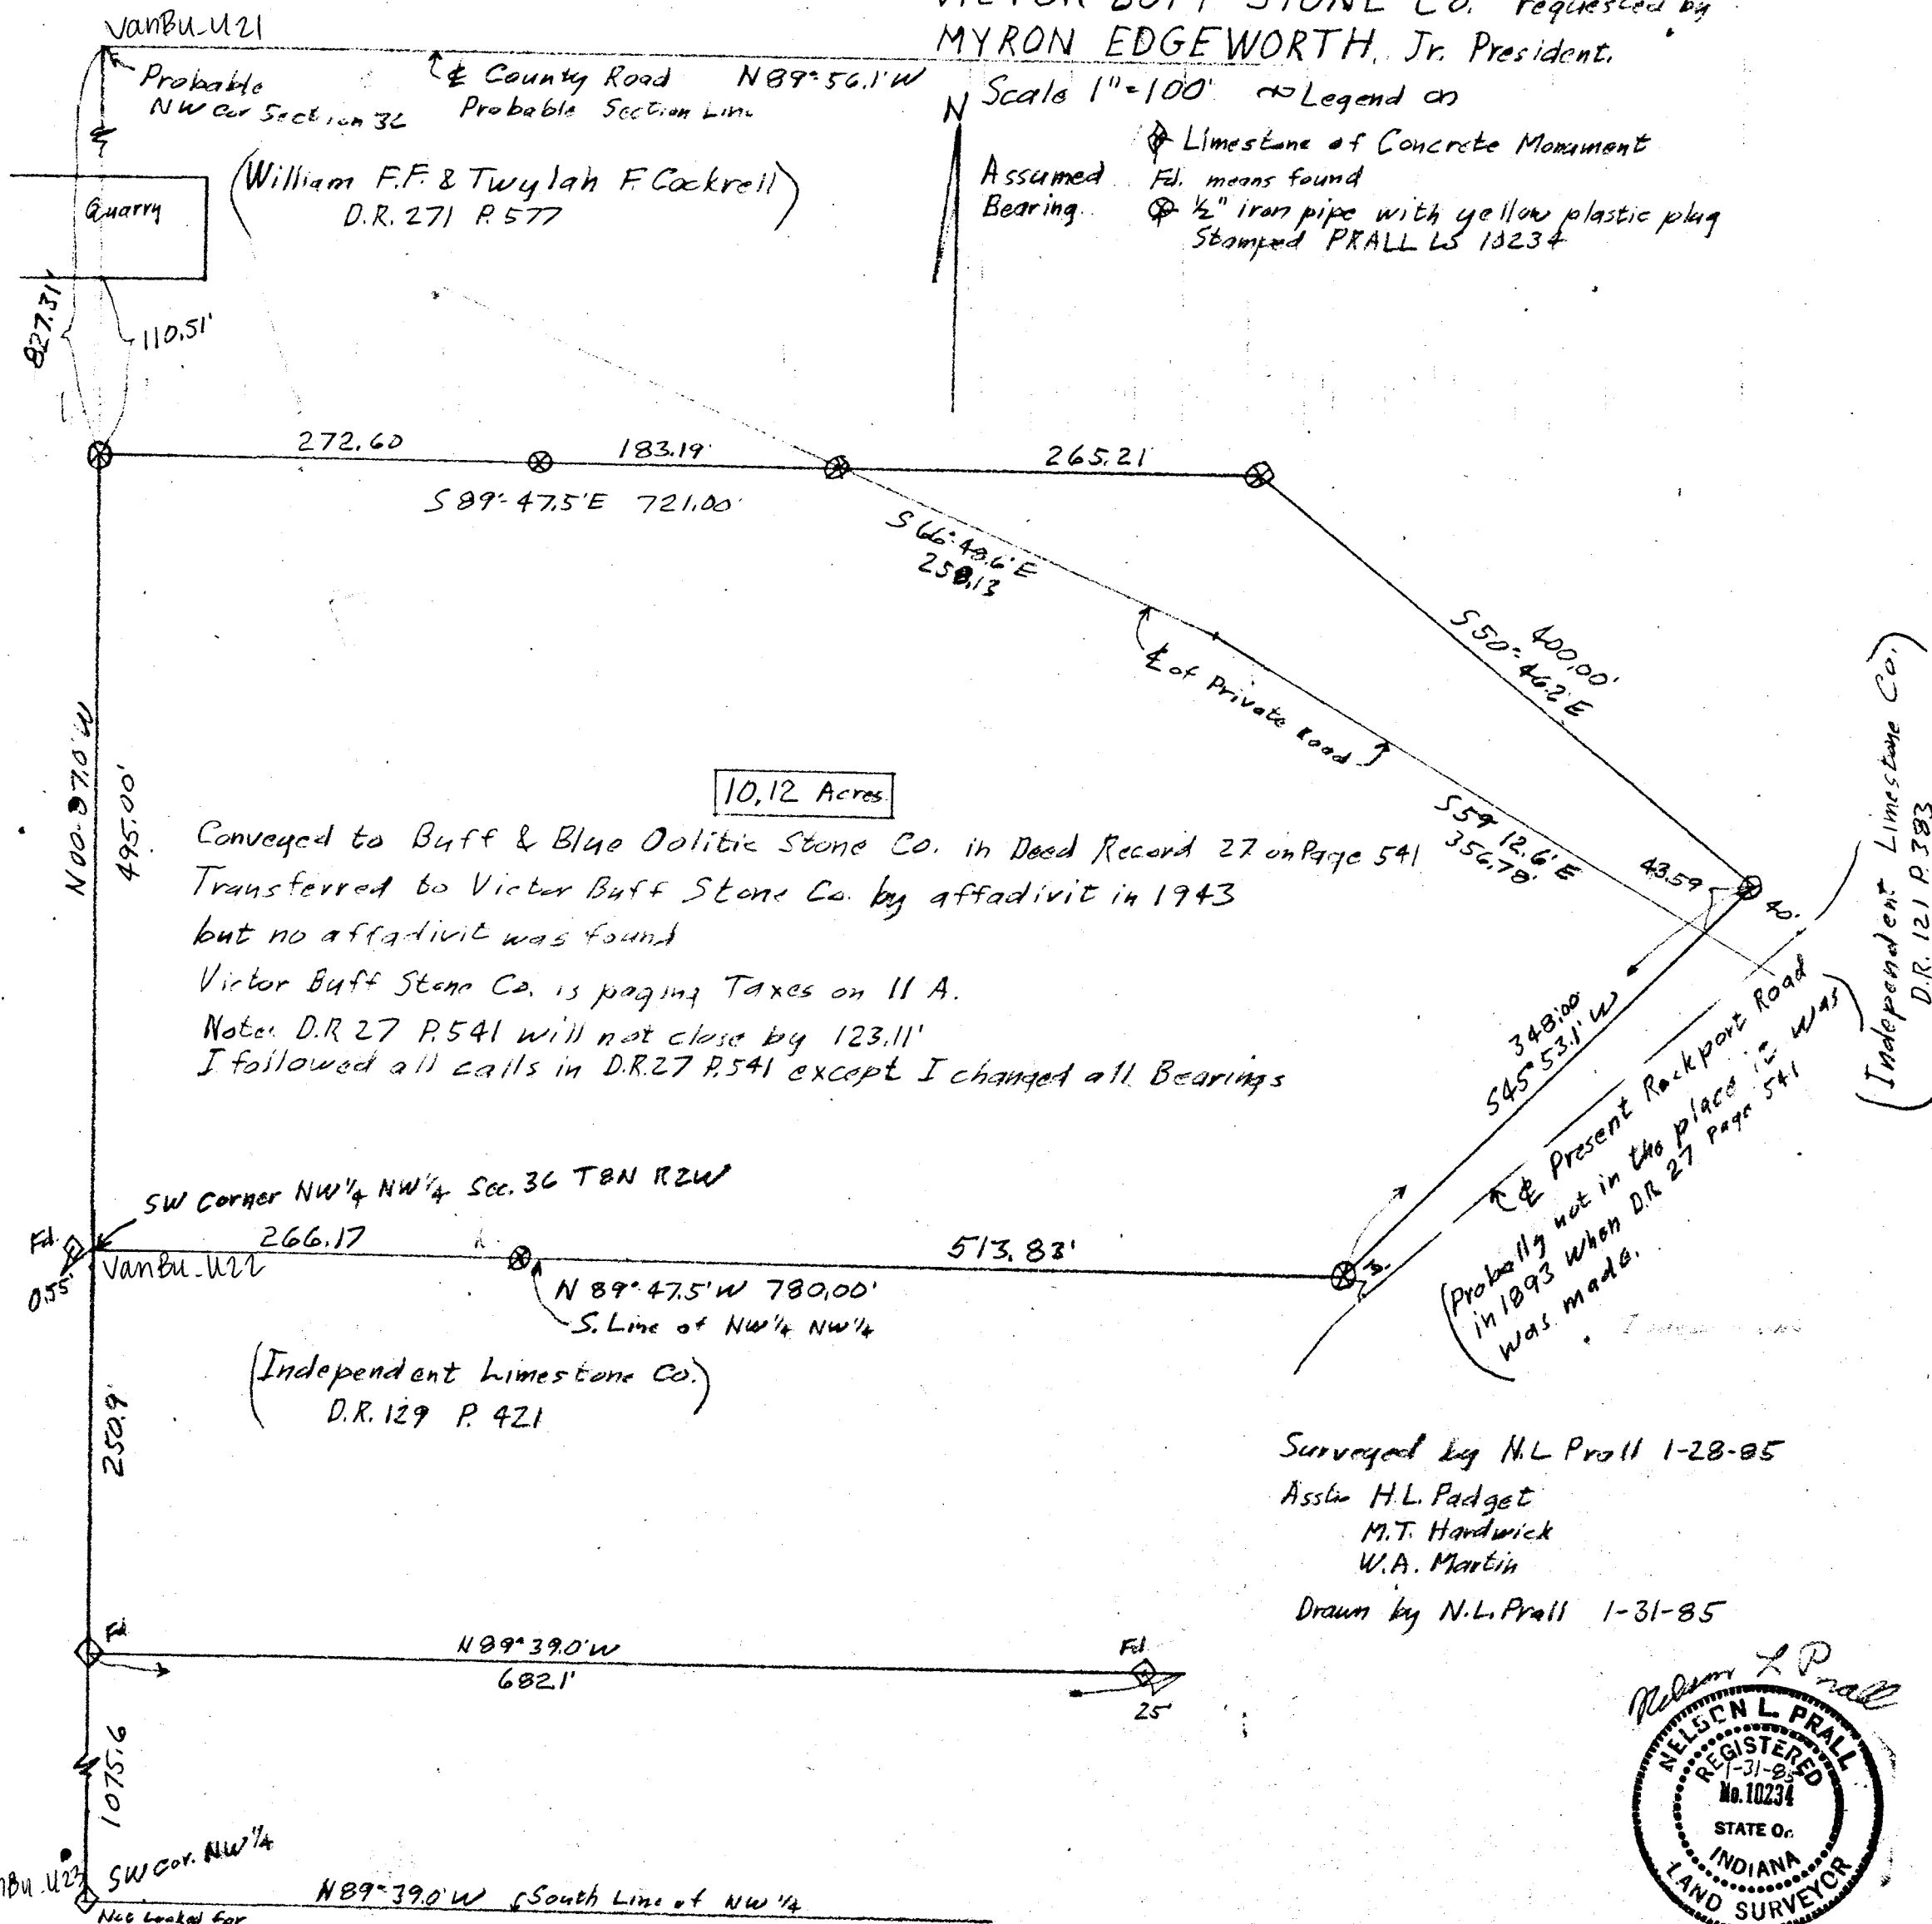 VICTOR BUFF STONE CO. requested by
MYRON EDGEWORTH, Jr. President.
Scale 1"=100' Legend
N
Assumed
Bearing
Limestone of Concrete Monument
Fd. means found
½" iron pipe with yellow plastic plug
Stamped PRALL LS 10234
VanBu-U21
Probable
NW cor Section 36
℄ County Road N89°56.1'W
Probable Section Line
Quarry
(William F.F. & Twylah F. Cockrell)
D.R. 271 P. 577
827.31'
110.51'
272.60
183.19'
265.21
S89°-47.5'E 721.00'
S66°-48.6'E
258.13
℄ of Private Road
400.00'
S50°-46.2'E
S59°12.6'E
356.78'
43.59
40.
(Independent Limestone Co.)
D.R. 121 P. 383
495.00'
10.12 Acres
Conveyed to Buff & Blue Oolitic Stone Co. in Deed Record 27 on Page 541
Transferred to Victor Buff Stone Co. by affadivit in 1943
but no affadivit was found
Victor Buff Stone Co. is paying Taxes on 11 A.
Note: D.R 27 P.541 will not close by 123.11'
I followed all calls in D.R.27 P.541 except I changed all Bearings
348.00'
S45°53.1'W
℄ Present Rockport Road
(Probally not in the place it was
in 1893 when D.R. 27 page 541
was made.
SW Corner NW¼ NW¼ Sec. 36 T8N R2W
Fd.
0.55'
VanBu-U22
266.17
513.83'
N 89°-47.5'W 780.00'
S. Line of NW¼ NW¼
(Independent Limestone Co.)
D.R. 129 P. 421
250.9'
Surveyed by N.L Prall 1-28-85
Assts H.L. Padget
M.T. Hardwick
W.A. Martin
Drawn by N.L. Prall 1-31-85
Fd
N89°39.0'W
682.1'
Fd
25'
1075.6
Nelson L Prall
NELSON L. PRALL
REGISTERED
1-31-85
No. 10234
STATE OF
INDIANA
LAND SURVEYOR
SW Cor. NW¼
N89°39.0'W South Line of NW¼
Not Looked For